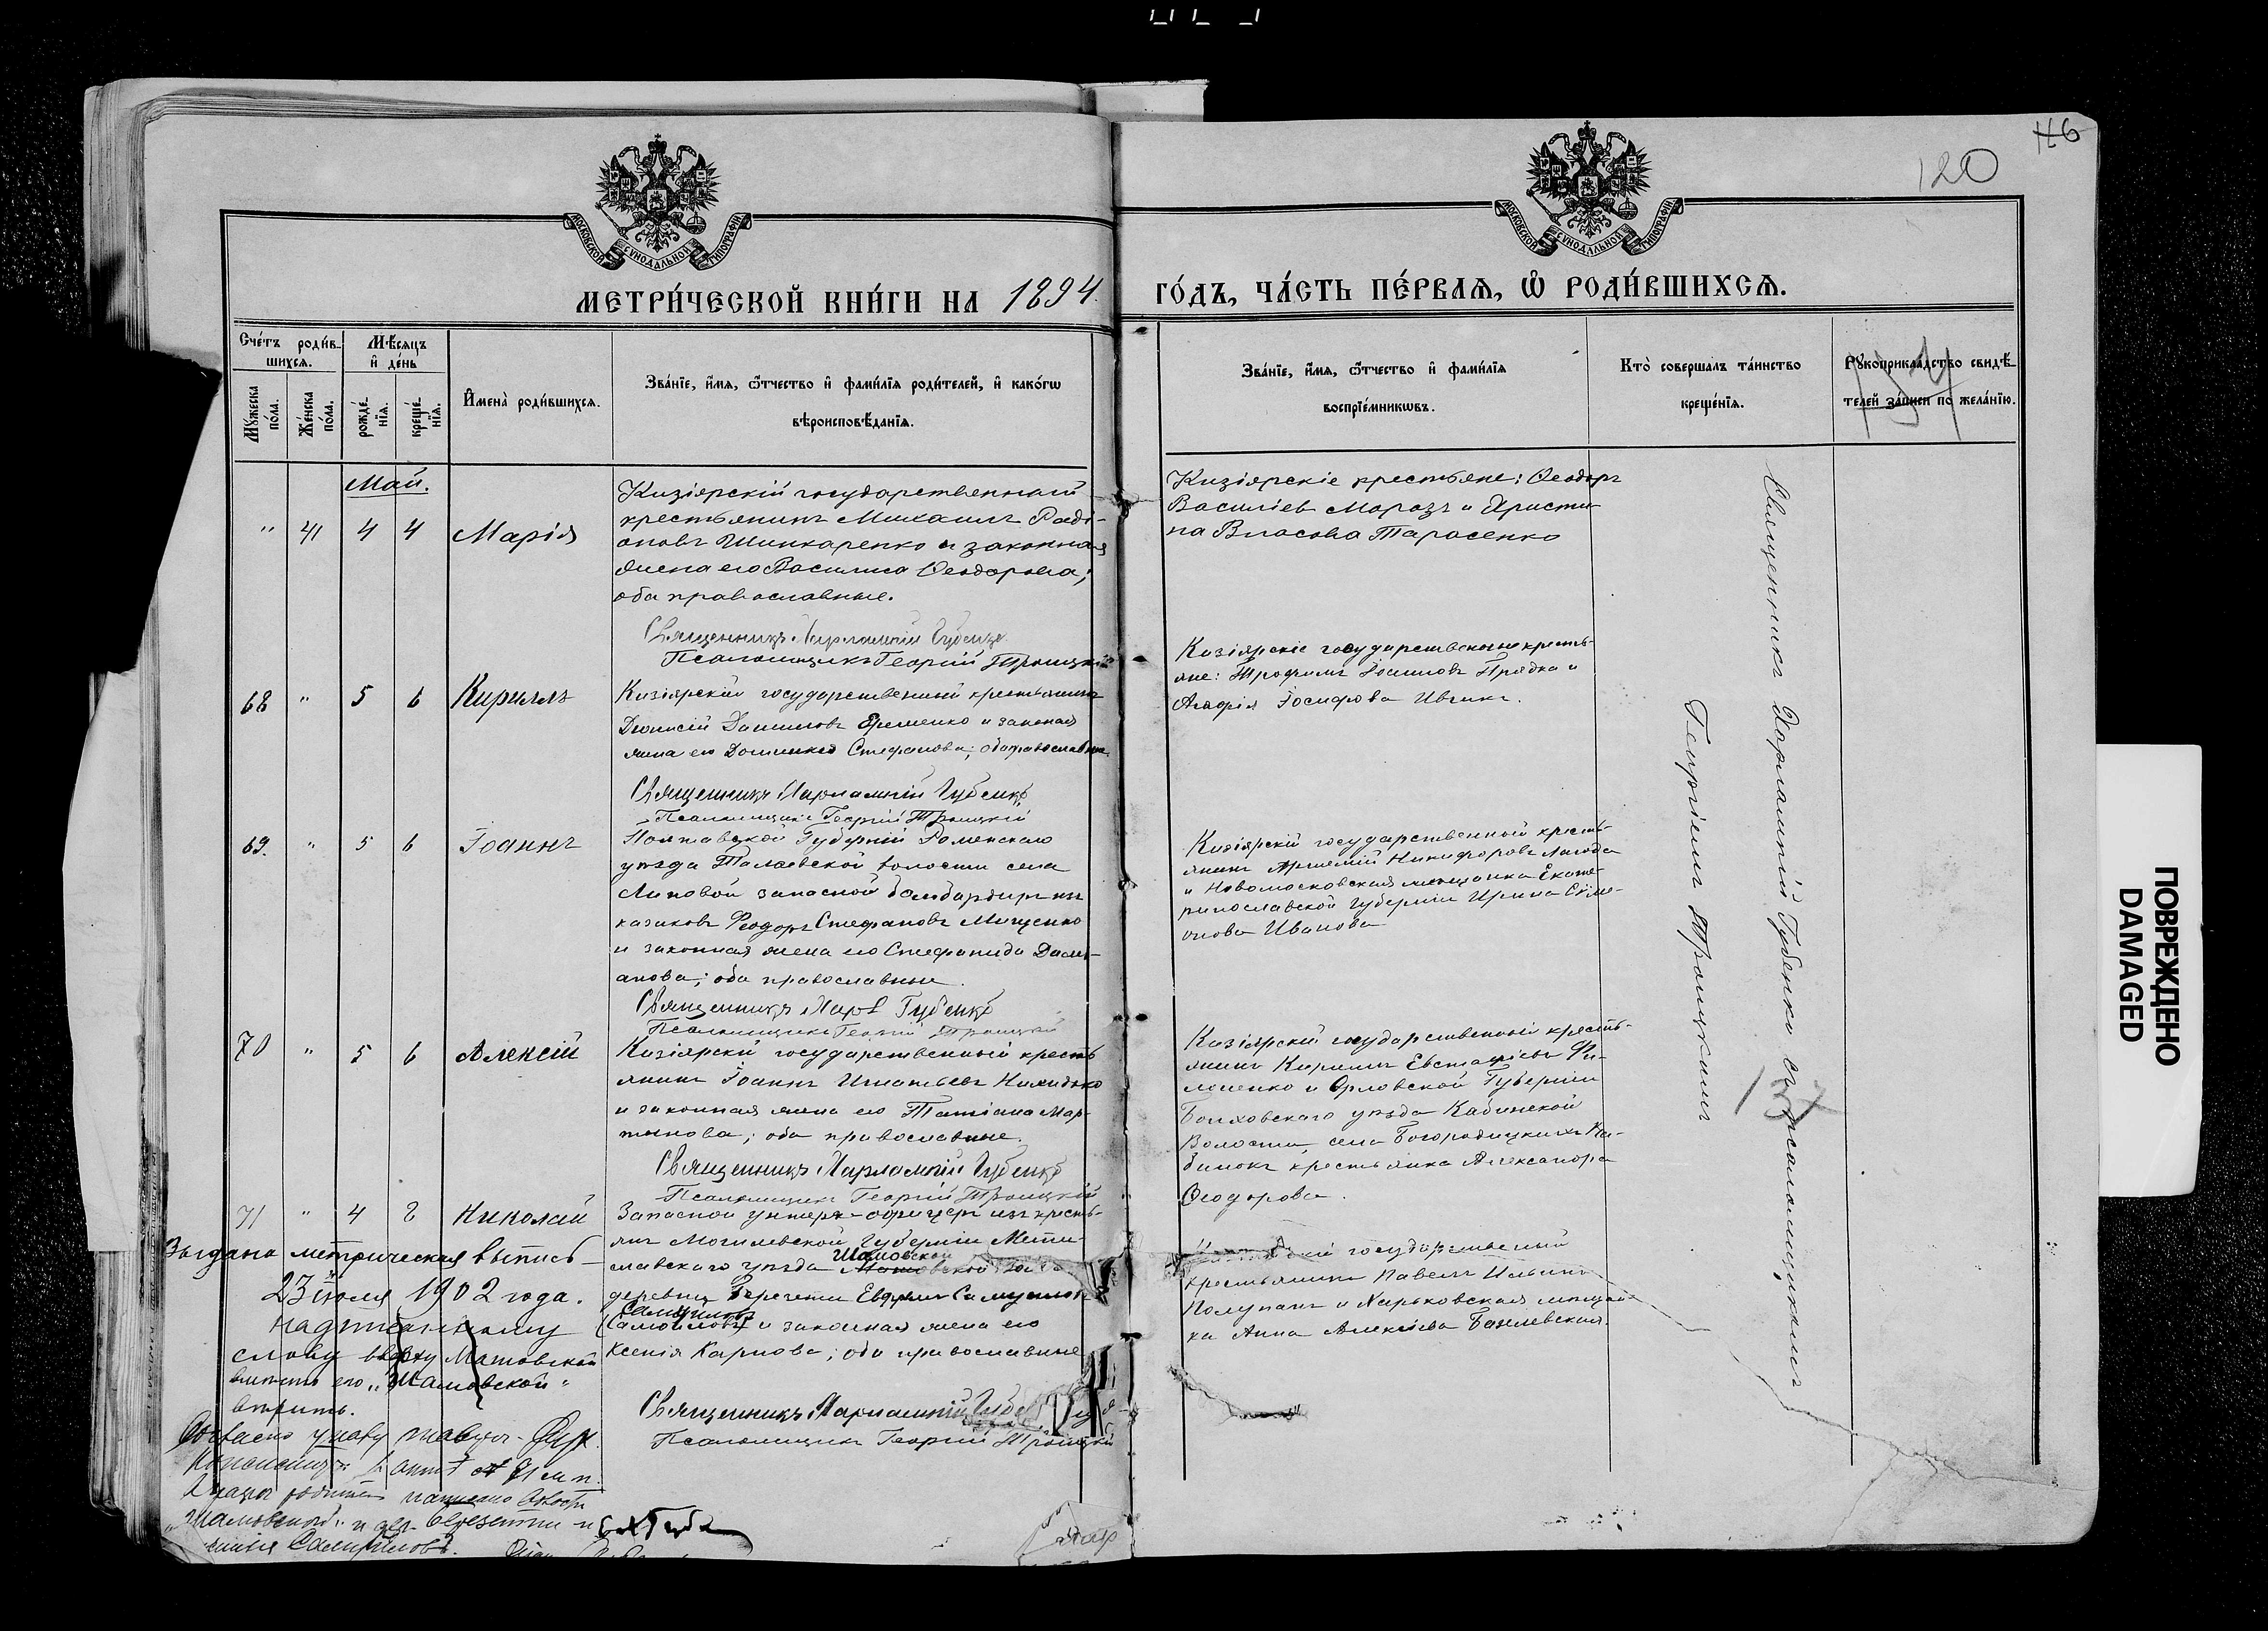 120
116
МОСКОВСКОЙ СѴНОДАЛЬНОЙ ТИПОГРАФІИ
МОСКОВСКОЙ СѴНОДАЛЬНОЙ ТИПОГРАФІИ
МЕТРИ́ЧЕСКОЙ КНИ́ГИ НА 1894.
ГО́ДЪ, ЧА́СТЬ ПЕ́РВАѦ, Ѿ РОДИ́ВШИХСѦ.
Сче́тъ роди́в-
шихсѧ.
Мꙋ́жеска по́ла.
Же́нска по́ла.
Мѣ́сѧцъ и҆ де́нь
рожде́-
нїѧ.
креще́-
нїѧ.
И҆мена̀ роди́вшихсѧ.
Зва́нїе, и҆́мѧ, ѻ҆́тчество и҆ фами́лїѧ роди́телей, и҆ како́гѡ
вѣроисповѣ́данїѧ.
Зва́нїе, и҆́мѧ, ѻ҆́тчество и҆ фами́лїѧ
воспрїе́мникѡвъ.
Кто̀ соверша́лъ та́инство
креще́нїѧ.
Рꙋкоприкла́дство свидѣ́-
телей за́писи по жела́нїю.
Май.
" 41 4 4 Марія
Кизіярскій государственный
крестьянинъ Михаилъ Раді-
оновъ Шинкаренко и законная
жена его Василиса Ѳеодорова;
оба православные.
Священникъ Харлампій Губенко
Псаломщикъ Георгій Троицкій
Кизіярскіе крестьяне: Ѳеодоръ
Василіев Морозъ и Христи-
на Власова Тарасенко
68 " 5 6 Кириллъ
Кизіярскій государственный крестьянинъ
Діонисій Даниловъ Ерешенко и законая
жена его Домникія Стефанова; оба православные
Священникъ Харлампій Губенко
Псаломщикъ Георгій Троицкій
Кизіярскіе государственные кресть-
яне: Трофимъ Іоанновъ Прядка и
Агафія Іосифова Ивчик.
69. " 5 6 Іоаннъ
Полтавской Губерніи Роменскаго
уѣзда Талаевской волости села
Липовой запасной бомбардиръ изъ
казаковъ Ѳеодоръ Стефановъ Мищенко
и законная жена его Стефанида Дами-
анова; оба православные.
Священникъ Харл Губенко
Псаломщикъ Георгій Троицкій
Кизіярскій государственной кресть-
янинъ Артемій Никифоровъ Лагода
и Новомосковская мѣщанка Екате-
ринославской губерніи Ирина Симе-
онова Иванова
70 " 5 6 Алексій
Кизіярскій государственный кресть
янинъ Іоаннъ Игнатьевъ
и законная жена его Татіана Мар-
тинова; оба православные.
Священникъ Харлампій Губенко
Псаломщикъ Георгій Троицкій
Кизіярскій государственный кресть-
янинъ Кириллъ Евстафіевъ Фи-
лоненко и Орловской Губерніи
Болховскаго уѣзда Кабинской
Волости, села Богородицкихъ Ка-
бинокъ крестьянка Александра
Ѳеодорова.
71 " 4 8 Николай
Запасной унтеръ-офицеръ изъ кресть-
янъ Могилевской Губерніи Мсти-
славскаго уѣзда Шамовской
деревни Евфимъ Самуилов
Самуиловъ
(Самойловъ) и законная жена его
Ксенія Карпова; оба православные
Священникъ Харлампій Губенко
Псаломщикъ Георгій Троицкій
государственный
крестьянинъ Павелъ Ильинъ
Полупанъ и Харьковская мѣщан-
ка Анна Алексіева Базилевская.
Выдана метрическая выпись
23 іюля 1902 года.
Надписанному
слову вверху
вмѣсто его "Шамовской"
вѣрить.
Священникъ Харлампій Губенко съ псаломщикомъ
Георгіемъ Троицкимъ
137
ПОВРЕЖДЕНО
DAMAGED